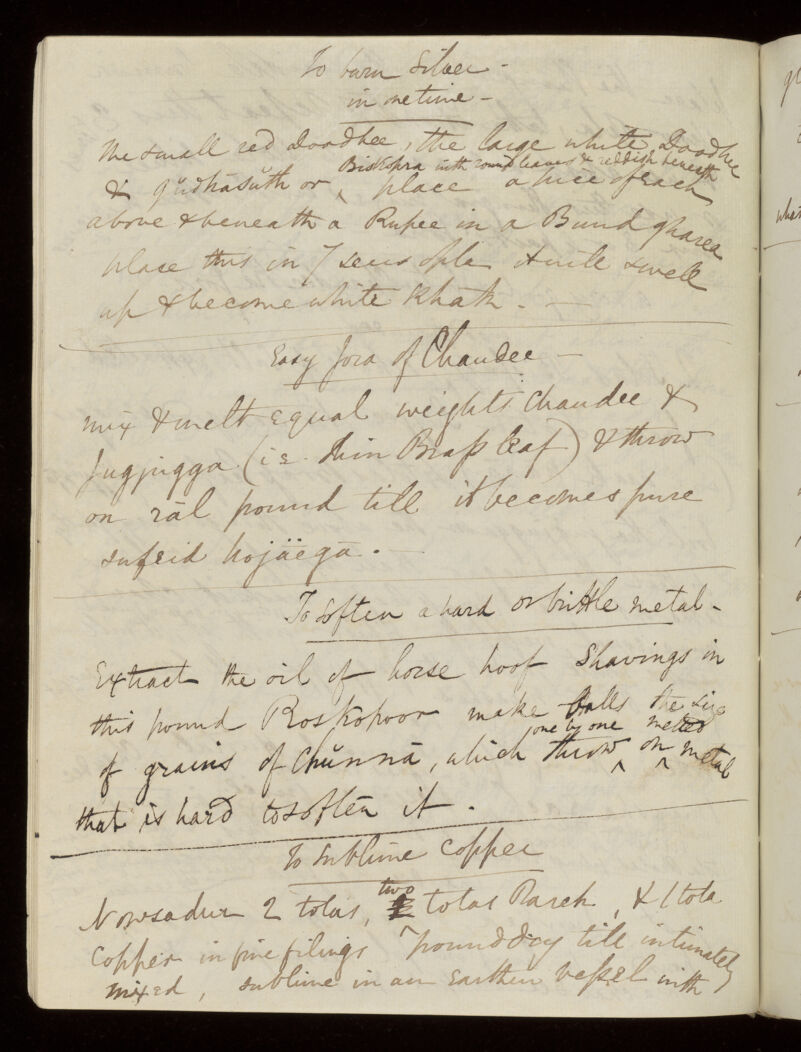 To burn Silver -
in one time -
The small red Doodhee, the large white Doodhee
Biskopra with round leaves & reddish beneath
& gŭdhāsŭth or ^ place a piece of each
above & beneath a Rupee in a Bund gharea
place this in 7 seers ople it will swell
up & become white Khak. -
Easy Jora of Chandee -
mix & melt equal weights Chandee &
Jugjugga (i.e. thin Brass leaf) & throw
on rāl pound till it becomes pure
sufeid hojäegā. -
To soften a hard or brittle metal -
Extract the oil of horse hoof shavings in
this pound Roskopoor make balls the size
one by one melted
of grains of Chŭnnā, which throw ^ on ^ metal
that is hard to soften it.
To sublime Copper
two
Nowsadur 2 tolas, totas Parch, & 1 tola
Copper in fine filings pound dry till intimately
mixed, sublime in an Earthen Vessel with